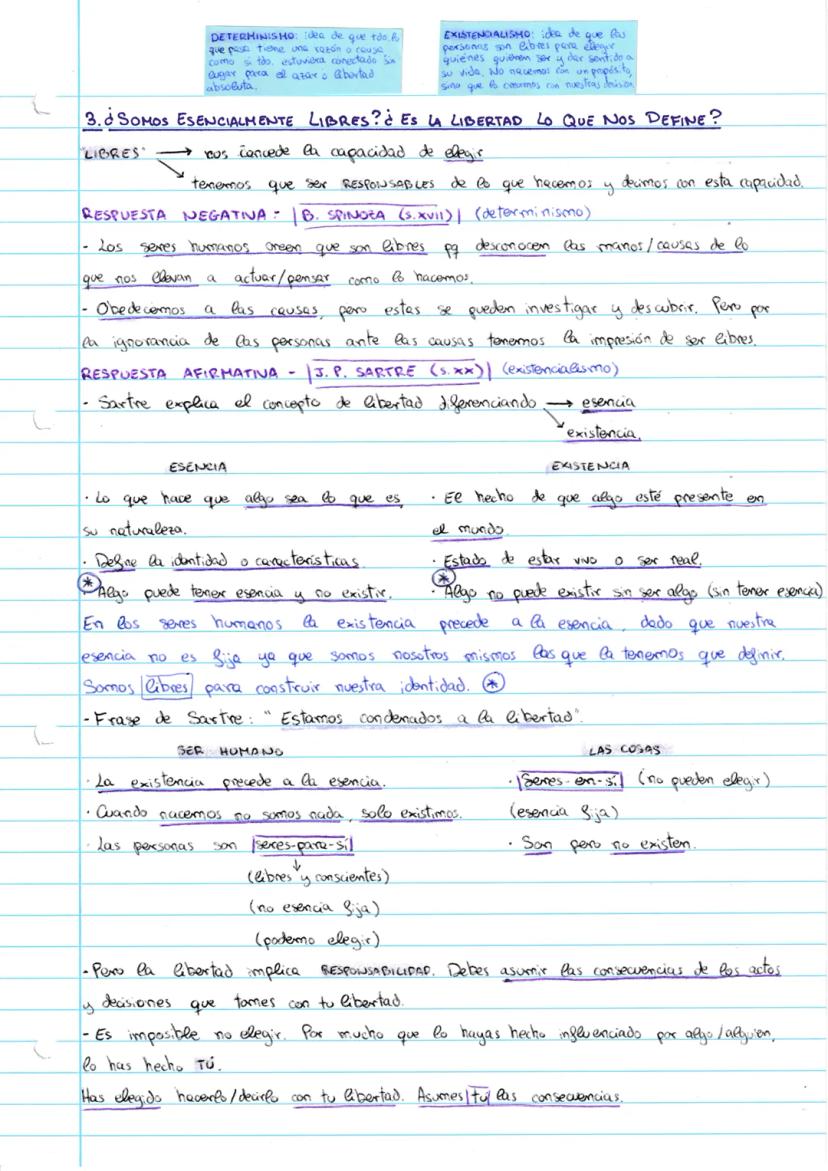 DETERMINISMO: idea de que tdo. lo
que pasa tiene una razón o causa
como si tdo. estuviera conectado sin
lugar para el azar o libertad
absoluta.
EXISTENCIALISMO: idea de que las
personas son libres para elegir
quiénes quieren ser y dar sentido a
su vida. No nacemos con un propósito,
sino que lo creamos con nuestras decisión
3. ¿SOMOS ESENCIALMENTE LIBRES? ¿ES LA LIBERTAD LO QUE NOS DEFINE?
"LIBRES" → nos concede la capacidad de elegir
tenemos que ser RESPONSABLES de lo que hacemos y decimos con esta capacidad.
RESPUESTA NEGATIVA - |B. SPINOZA (s.XVII)| (determinismo)
- Los seres humanos creen que son libres pq desconocen las manos/causas de lo
que nos llevan a actuar/pensar como lo hacemos.
- Obedecemos a las causas, pero estas se pueden investigar y descubrir. Pero por
la ignorancia de las personas ante las causas tenemos la impresión de ser libres.
RESPUESTA AFIRMATIVA - |J. P. SARTRE (s.XX)| (existencialismo)
- Sartre explica el concepto de libertad diferenciando → esencia
existencia.
ESENCIA
· Lo que hace que algo sea lo que es,
su naturaleza.
· Define la identidad o características.
* Algo puede tener esencia y no existir.
EXISTENCIA
· El hecho de que algo esté presente en
el mundo.
· Estado de estar vivo o ser real.
* · Algo no puede existir sin ser algo (sin tener esencia)
En los seres humanos la existencia precede a la esencia, dado que nuestra
esencia no es fija ya que somos nosotros mismos las que la tenemos que definir.
Somos |libres| para construir nuestra identidad. *
- Frase de Sartre: "Estamos condenados a la libertad".
SER HUMANO
· La existencia precede a la esencia.
· Cuando nacemos no somos nada, solo existimos.
· Las personas son |seres-para-sí|
↓
(libres y conscientes)
(no esencia fija)
(podemo elegir)
LAS COSAS
· |Seres-en-sí| (no pueden elegir)
(esencia fija)
· Son pero no existen.
- Pero la libertad implica RESPONSABILIDAD. Debes asumir las consecuencias de los actos
y decisiones que tomes con tu libertad.
- Es imposible no elegir. Por mucho que lo hayas hecho influenciado por algo/alguien,
lo has hecho TÚ.
Has elegido hacerlo/decirlo con tu libertad. Asumes |tú| las consecuencias.